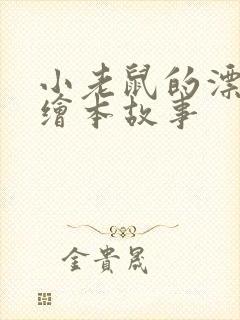 小老鼠的漂
繪本故事
金貴晟